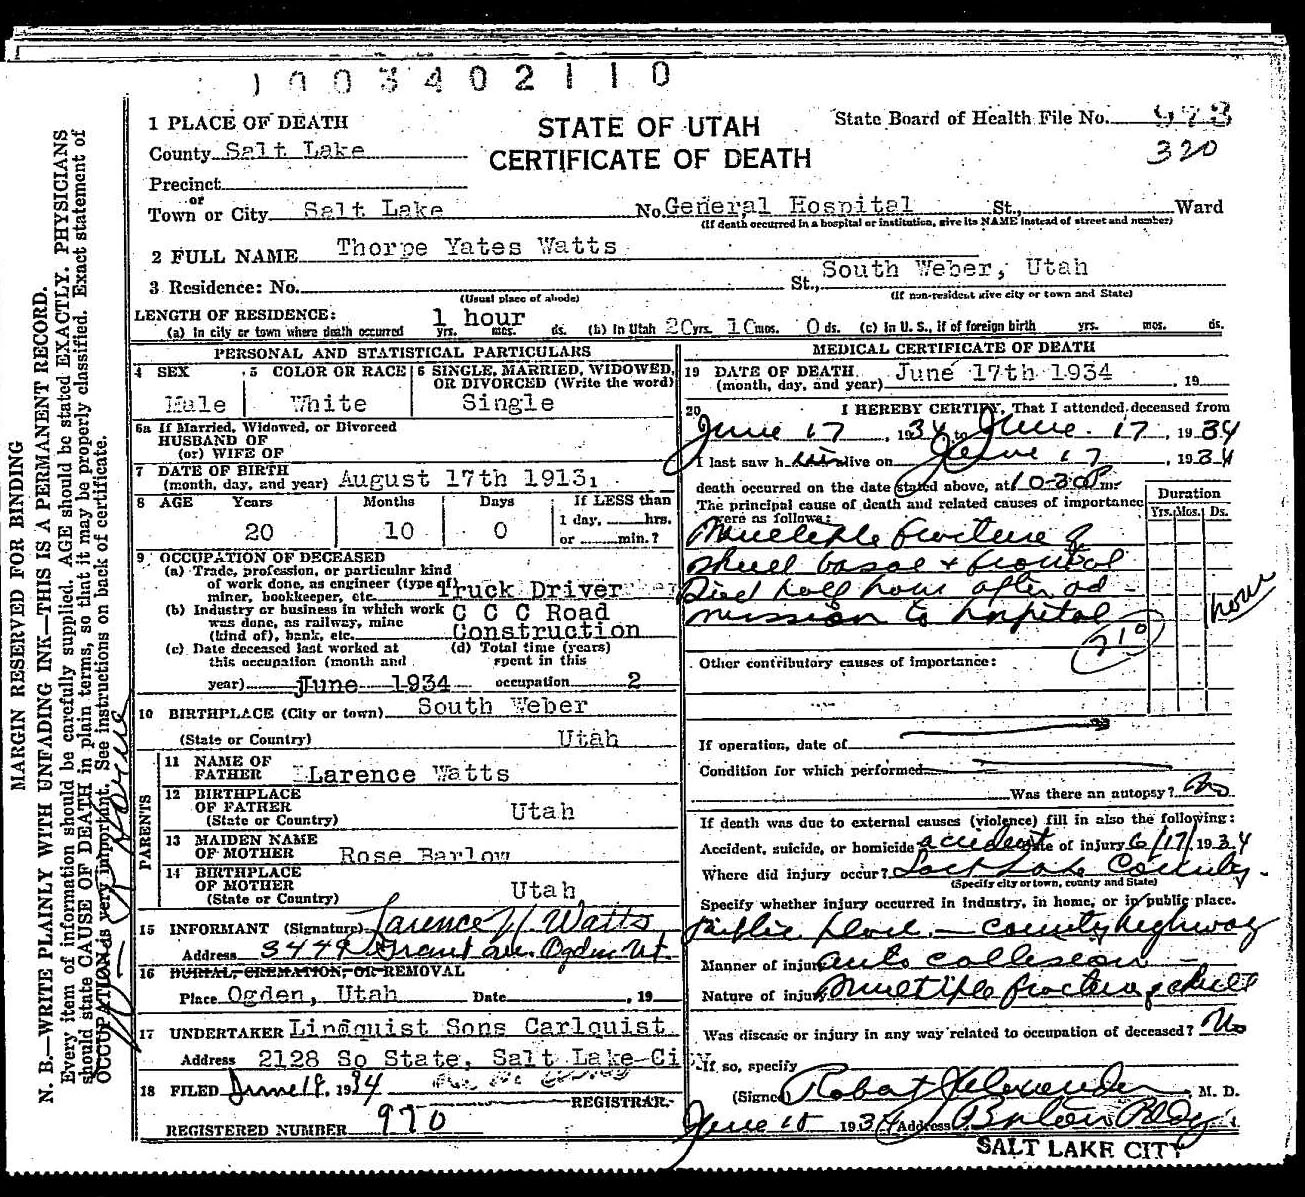 1003402110
1 PLACE OF DEATH
STATE OF UTAH
CERTIFICATE OF DEATH
State Board of Health File No.
320
County Salt Lake
Precinct
or
Town or City Salt Lake No. General Hospital St., Ward
(If death occurred in a hospital or institution, give its NAME instead of street and number)
2 FULL NAME Thorpe Yates Watts
3 Residence: No. St., South Weber, Utah
(Usual place of abode) (If non-resident give city or town and State)
LENGTH OF RESIDENCE:
(a) In city or town where death occurred 1 hour yrs. mos. ds. (b) In Utah 20 yrs. 10 mos. 0 ds. (c) In U. S., if of foreign birth yrs. mos. ds.
PERSONAL AND STATISTICAL PARTICULARS
4 SEX Male
5 COLOR OR RACE White
6 SINGLE, MARRIED, WIDOWED, OR DIVORCED (Write the word) Single
6a If Married, Widowed, or Divorced
HUSBAND OF
(or) WIFE OF
7 DATE OF BIRTH
(month, day, and year) August 17th 1913
8 AGE Years Months Days If LESS than
20 10 0 1 day, hrs.
or min.?
9 OCCUPATION OF DECEASED
(a) Trade, profession, or particular kind
of work done, as engineer (type of)
miner, bookkeeper, etc. Truck Driver
(b) Industry or business in which work
was done, as railway, mine
(kind of), bank, etc. C C C Road Construction
(c) Date deceased last worked at
this occupation (month and
year) June 1934
(d) Total time (years)
spent in this
occupation 2
10 BIRTHPLACE (City or town) South Weber
(State or Country) Utah
PARENTS
11 NAME OF
FATHER Larence Watts
12 BIRTHPLACE
OF FATHER
(State or Country) Utah
13 MAIDEN NAME
OF MOTHER Rose Barlow
14 BIRTHPLACE
OF MOTHER
(State or Country) Utah
15 INFORMANT (Signature) Larence Y. Watts
Address 3449 Grant av. Ogden Ut.
16 BURIAL, CREMATION, OR REMOVAL
Place Ogden, Utah Date , 19
17 UNDERTAKER Lindquist Sons Carlquist
Address 2128 So State, Salt Lake City
18 FILED June 18, 1934
REGISTRAR.
REGISTERED NUMBER 970
MEDICAL CERTIFICATE OF DEATH
19 DATE OF DEATH
(month, day, and year) June 17th 1934 , 19
20 I HEREBY CERTIFY, That I attended deceased from
June 17, 1934 to June 17, 1934
I last saw h im alive on June 17, 1934
death occurred on the date stated above, at 10-30 P m
The principal cause of death and related causes of importance
were as follows:
Duration
Yrs. Mos. Ds.
Multiple fracture of
skull basal & frontal
Died half hour after ad-
mission to hospital
hour
210
Other contributory causes of importance:
If operation, date of
Condition for which performed
Was there an autopsy? No
If death was due to external causes (violence) fill in also the following:
Accident, suicide, or homicide accident date of injury 6/17/1934
Where did injury occur? Salt Lake County.
(Specify city or town, county and State)
Specify whether injury occurred in industry, in home, or in public place.
Public place - county highway
Manner of injury auto collision -
Nature of injury Multiple fracture of skull
Was disease or injury in any way related to occupation of deceased? No
If so, specify
(Signed) Robert Alexander, M. D.
June 18 1934 (Address) Boston Bldg.
SALT LAKE CITY
MARGIN RESERVED FOR BINDING
N. B.—WRITE PLAINLY WITH UNFADING INK—THIS IS A PERMANENT RECORD.
Every item of information should be carefully supplied. AGE should be stated EXACTLY. PHYSICIANS
should state CAUSE OF DEATH in plain terms, so that it may be properly classified. Exact statement of
OCCUPATION is very important. See instructions on back of certificate.